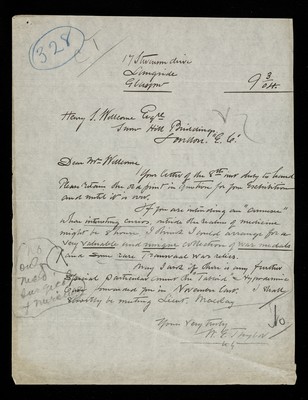 328
17 Stevenson drive
Langside
Glasgow
9 3
Henry S. Wellcome Esqre
Snow Hill Buildings
London. E.C.
Dear Mr Wellcome
Your letter of the 8th inst duly to hand
Please retain the old print in question for your Exhibition
and until it is over.
If you are intending an "annexe"
where interesting curios, outside the realm of medicine
might be shown I think I could arrange for a
very valuable and unique collection of war medals
and some rare Transvaal War relics.
May I ask if there is any further
special particulars about the Tabloid & Hypodermic
forwarded you in November last. I shall
shortly be meeting Lieut.
Yours very truly
No
only